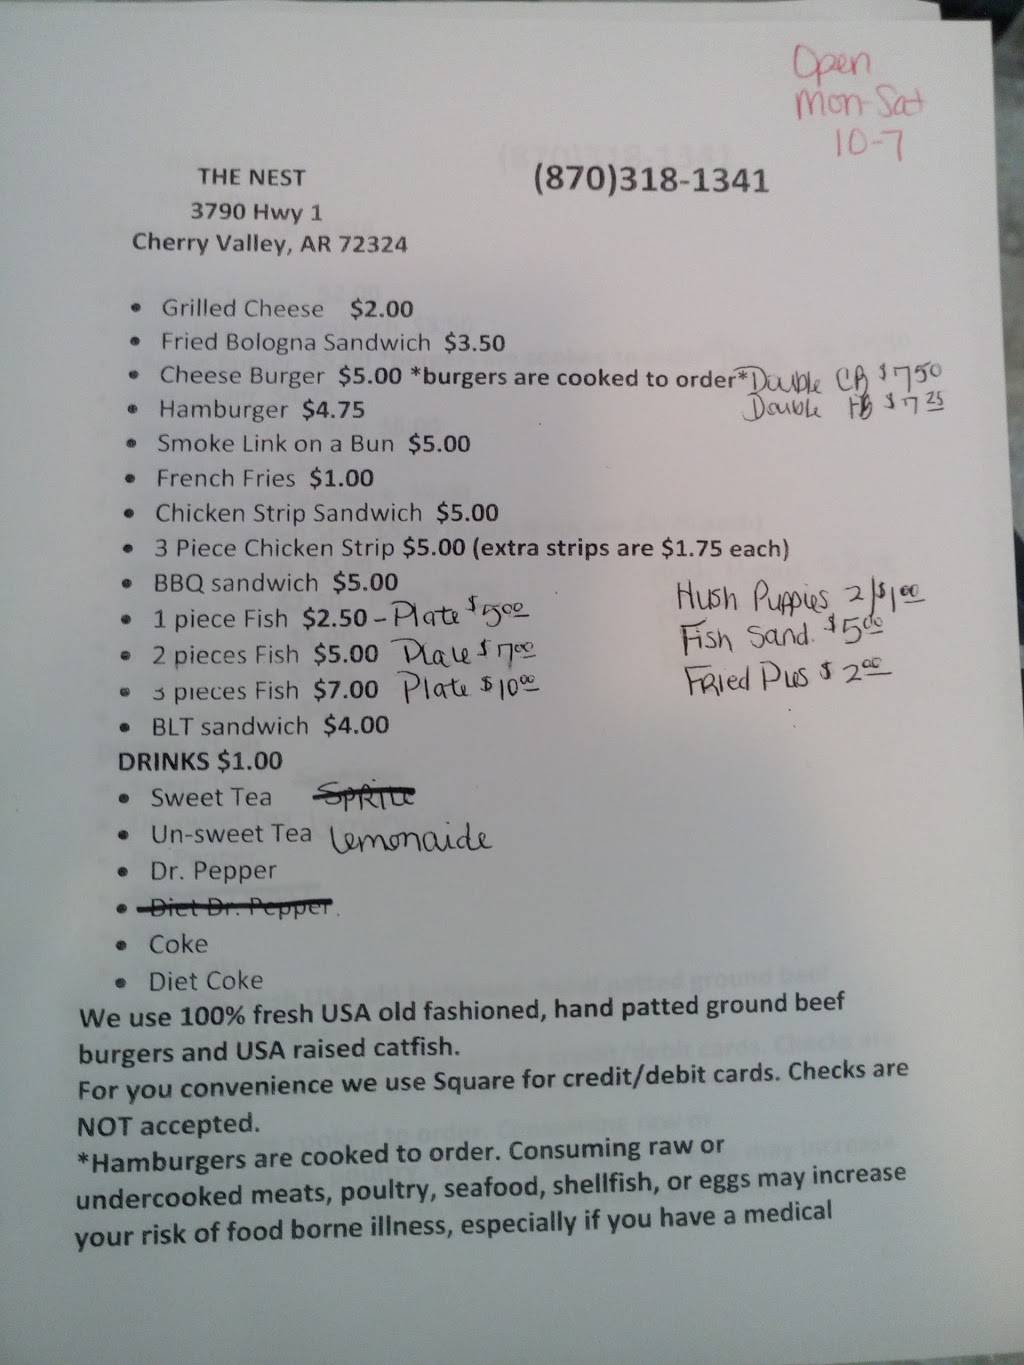 Open
Mon-Sat
10-7
THE NEST (870)318-1341
3790 Hwy 1
Cherry Valley, AR 72324
• Grilled Cheese $2.00
• Fried Bologna Sandwich $3.50
• Cheese Burger $5.00 *burgers are cooked to order* Double CB $7.50
• Hamburger $4.75 Double HB $7.25
• Smoke Link on a Bun $5.00
• French Fries $1.00
• Chicken Strip Sandwich $5.00
• 3 Piece Chicken Strip $5.00 (extra strips are $1.75 each)
• BBQ sandwich $5.00 Hush Puppies 2/$1.00
• 1 piece Fish $2.50 - Plate $5.00 Fish Sand. $5.00
• 2 pieces Fish $5.00 Plate $7.00 Fried Pies $2.00
• 3 pieces Fish $7.00 Plate $10.00
• BLT sandwich $4.00
DRINKS $1.00
• Sweet Tea SPRITE
• Un-sweet Tea Lemonaide
• Dr. Pepper
• Diet Dr. Pepper.
• Coke
• Diet Coke
We use 100% fresh USA old fashioned, hand patted ground beef
burgers and USA raised catfish.
For you convenience we use Square for credit/debit cards. Checks are
NOT accepted.
*Hamburgers are cooked to order. Consuming raw or
undercooked meats, poultry, seafood, shellfish, or eggs may increase
your risk of food borne illness, especially if you have a medical